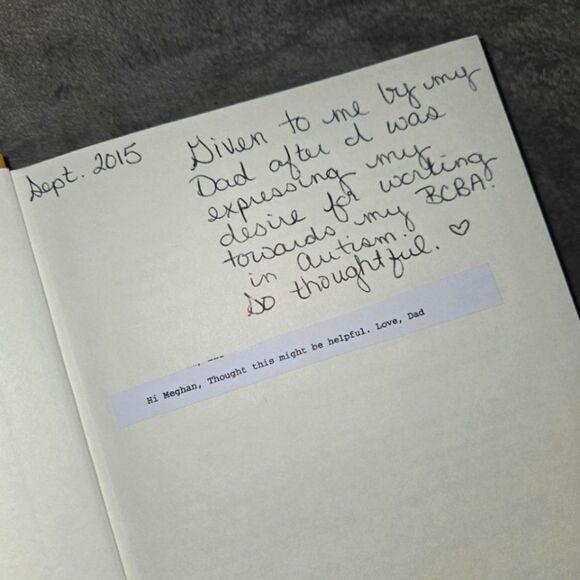 Sept. 2015
Given to me by my
Dad after I was
expressing my
desire for working
towards my BCBA!
in autism.
So thoughtful. ♡
Hi Meghan, Thought this might be helpful. Love, Dad